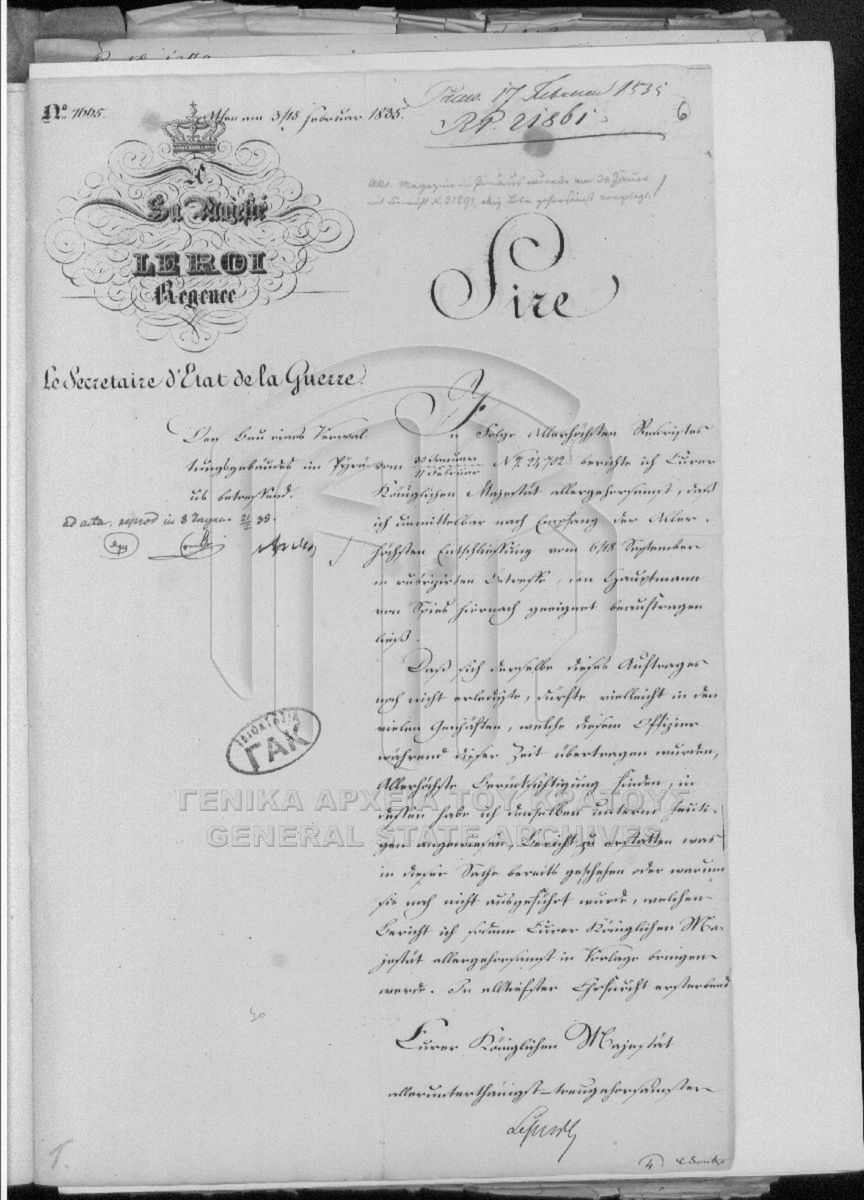 No 1665.
Athen am 3/15 Februar 1835.
17 Februar 1835
RP. 21861.
6
A
Sa Majesté
LE ROI
Régence
Sire
Le Secretaire d'Etat de la Guerre.
Den Bau eines Verwal
tungsgebäudes in Pyrä
us betreffend.
ad acta, reprod in 8 Tagen
In Folge Allerhöchsten Rescriptes
vom 30 Januar / 11 Februar No 24702 berichte ich Eurer
Königlichen Majestät allergehorsamst, daß
ich unmittelbar nach Empfang der Aller-
höchsten Entschliessung vom 6/18 September
in rubrizirten Betreffe, den Hauptmann
von Spies hiernach geeignet beauftragen
ließ.
Daß sich derselbe dieses Auftrages
noch nicht erledigte, dürfte vielleicht in den
vielen Geschäften, welche diesem Offizier
während dieser Zeit übertragen wurden,
Allerhöchste Berücksichtigung finden, in
dessen habe ich denselben unterm Heuti-
gen angewiesen, Bericht zu erstatten was
in dieser Sache bereits geschehen oder warum
sie noch nicht ausgeführt wurde, welchen
Bericht ich sodann Eurer Königlichen Ma-
jestät allergehorsamst in Vorlage bringen
werde. In alltiefster Ehrfurcht ersterbend
Eurer Königlichen Majestät
allerunterthänigst-treugehorsamster
ΓΑΚ
ΓΕΝΙΚΑ ΑΡΧΕΙΑ ΤΟΥ ΚΡΑΤΟΥΣ
GENERAL STATE ARCHIVES
4